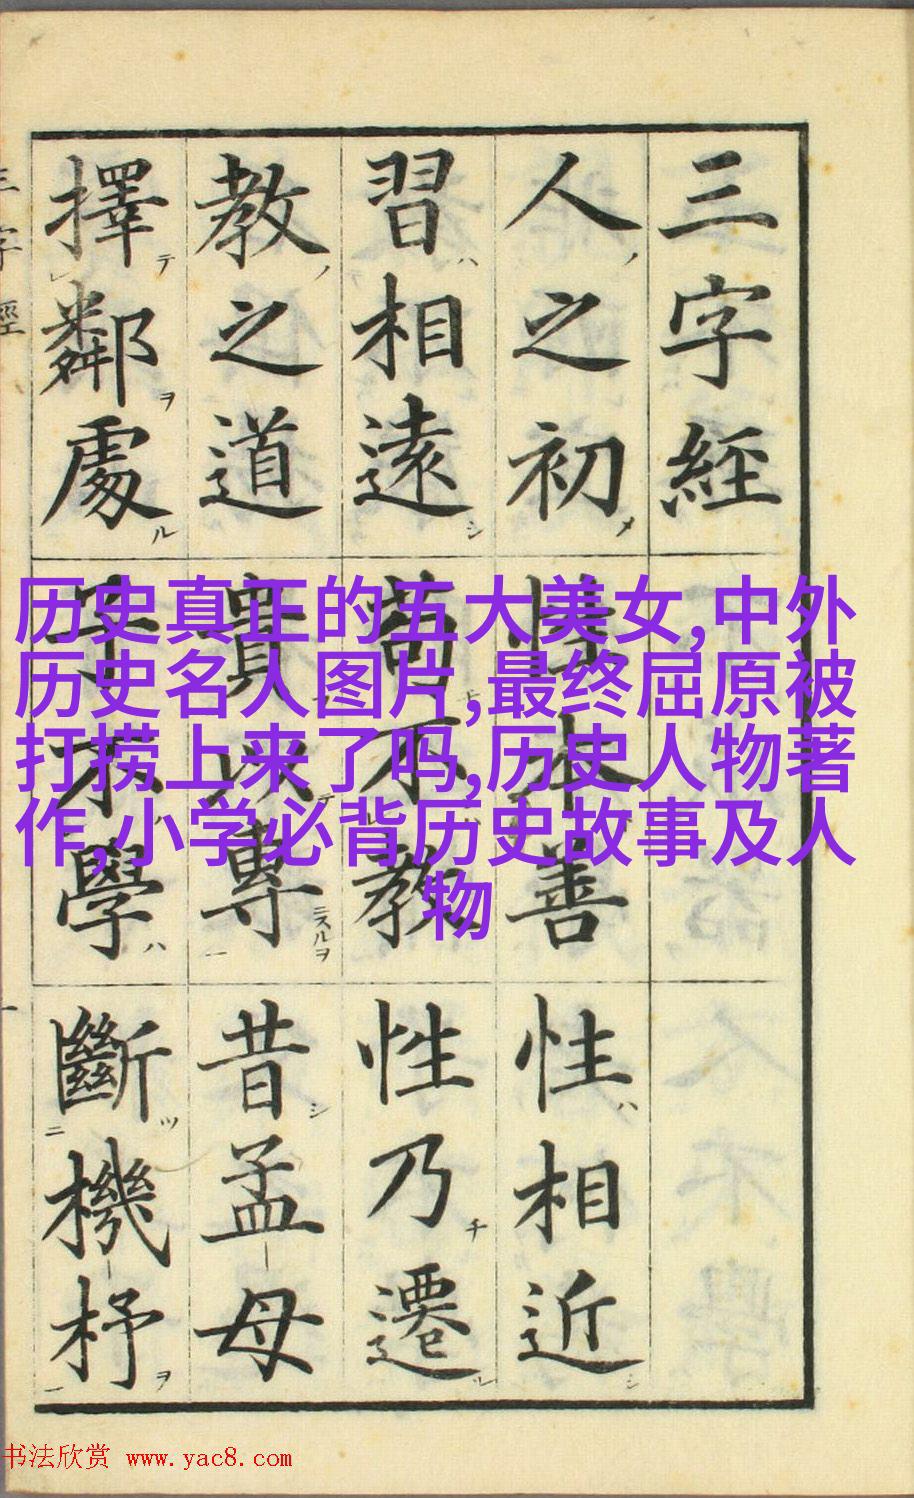 三字経
人之初性本善性相近
習相遠苟不教性乃遷
教之道貴以專昔孟母
擇鄰處子不學斷機杼
三字經 一
历史真正的五大美女,中外
历史名人图片,最终屈原被
打捞上来了吗,历史人物著
作,小学必背历史故事及人
物
书法欣赏 www.yac8.com